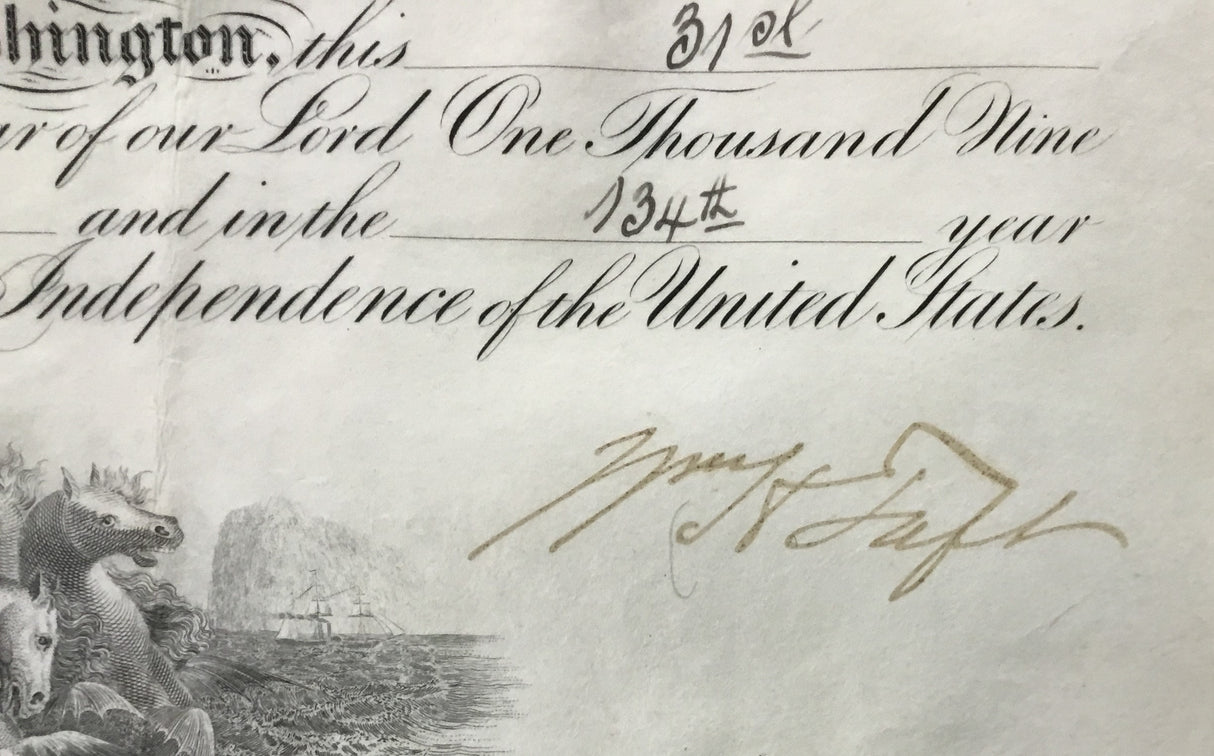 shington, this 31st
ar of our Lord One Thousand Nine
and in the 134th year
Independence of the United States.
Wm H Taft